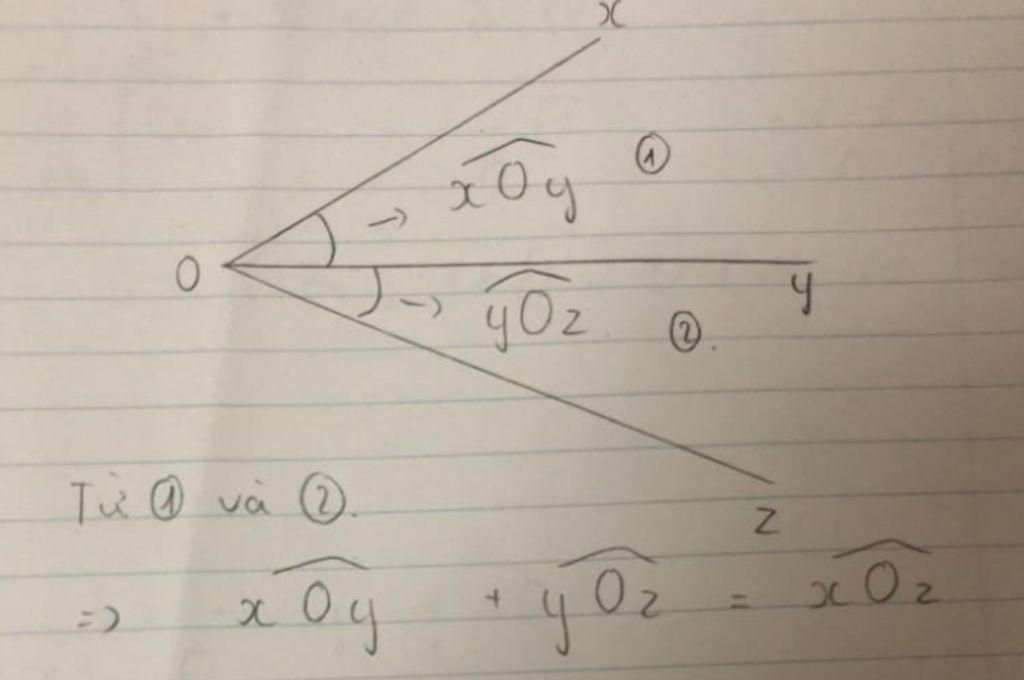 x
xOy ①
O
y
yOz ②.
z
Từ ① và ②.
=> xOy + yOz = xOz